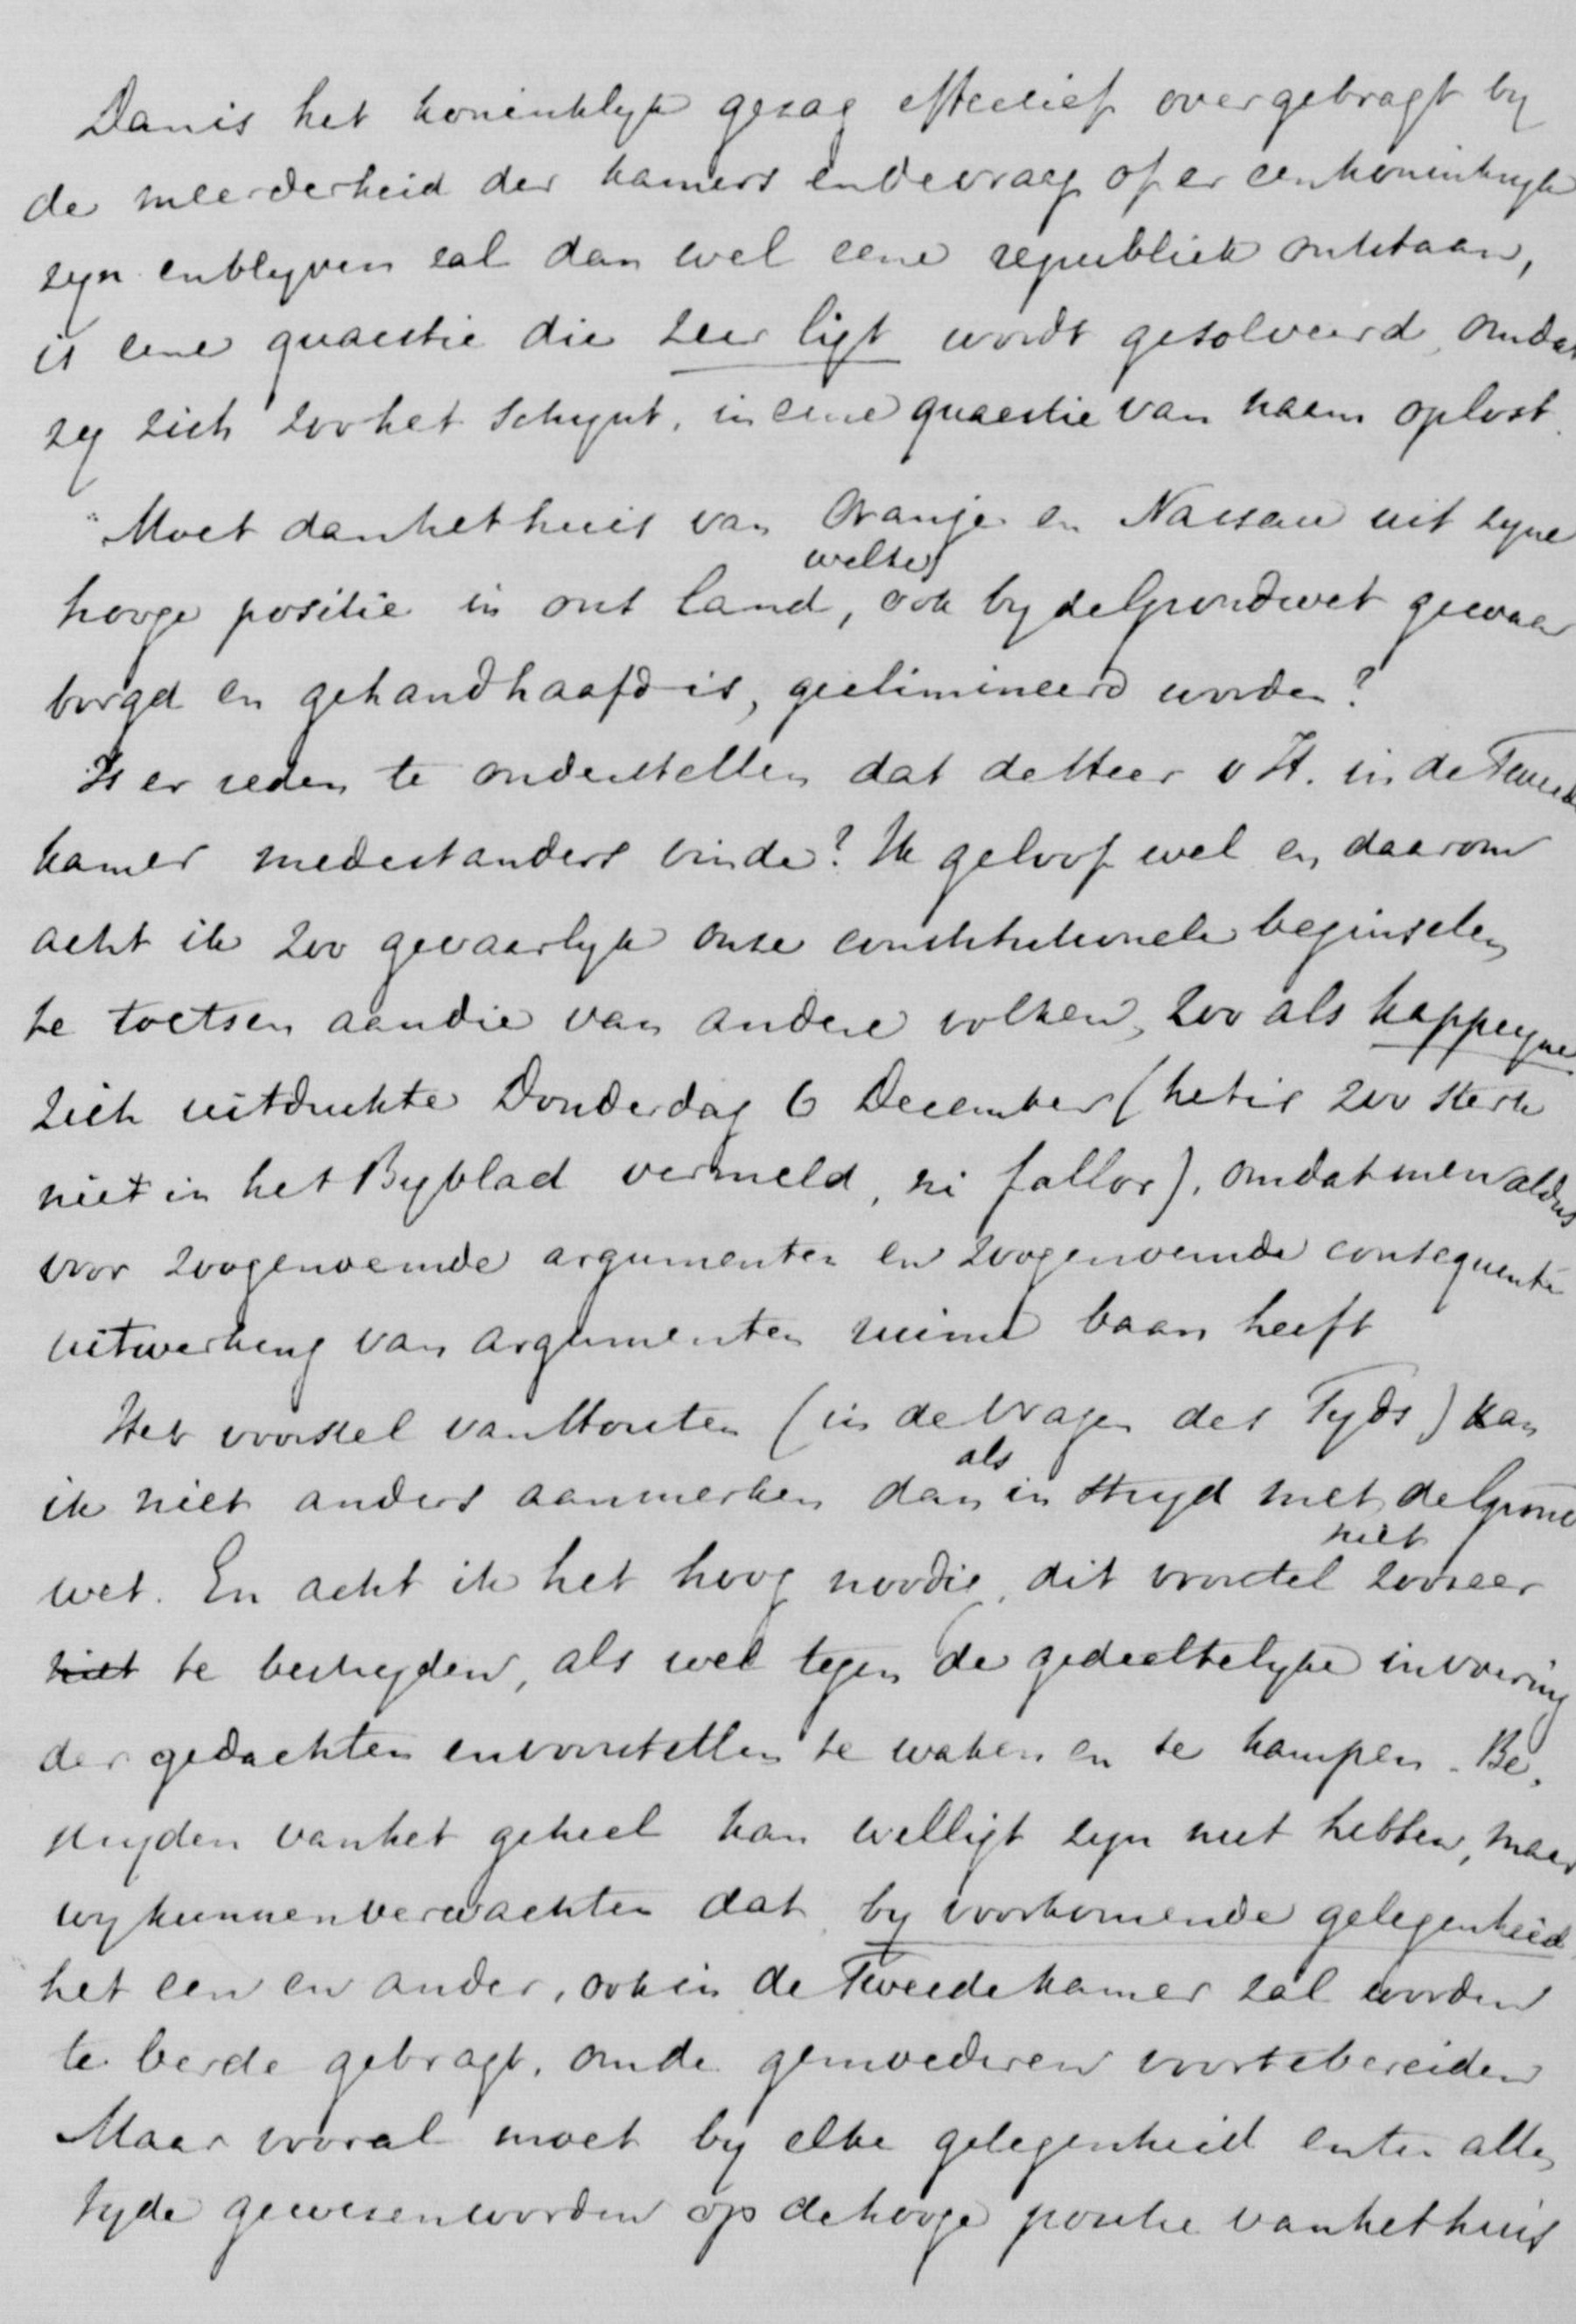 Dan is het koninklyk gezag effectief overgebragt by
de meerderheid der kamers en de vraag of er een koninkryk
zyn en blyven zal dan wel eene republiek ontstaan,
is eene quaestie die zeer ligt wordt gesolveerd, omdat
zy zich zoo het schynt, in eene quaestie van naam oplost.
Moet dan het huis van Oranje en Nassau uit zyne
welke
hooge positie in ons land, ook by de Grondwet gewaar
borgd en gehandhaafd is, geelimineerd worden?
Is er reden te onderstellen dat de Heer v H. in de Tweede
kamer medestanders vinde? Ik geloof wel en daarom
acht ik zoo gevaarlyk onze constitutionele beginselen
te toetsen aan die van andere volken, zoo als Kappeyne
zich uitdrukte Donderdag 6 December (het is zoo sterk
niet in het Byblad vermeld, ni fallor), omdat men aldus
voor zoogenoemde argumenten en zoogenoemde consequente
uitwerking van argumenten ruime baan heeft
Het voorstel van Houten (in de Vragen des Tyds) kan
als
ik niet anders aanmerken dan in stryd met de Grond
niet
wet. En acht ik het hoog noodig, dit voorstel zoozeer
niet te bestryden, als wel tegen de gedeeltelyke invoering
der gedachten en voorstellen te waken en te kampen. Be,
stryden van het geheel kan welligt zyn nut hebben, maar
wy kunnen verwachten dat by voorkomende gelegenheid
het een en ander, ook in de Tweede kamer zal worden
te berde gebragt, om de gemoederen voor te bereiden
Maar vooral moet by elke gelegenheid en ten allen
tyde gewezen worden op de hooge positie van het huis